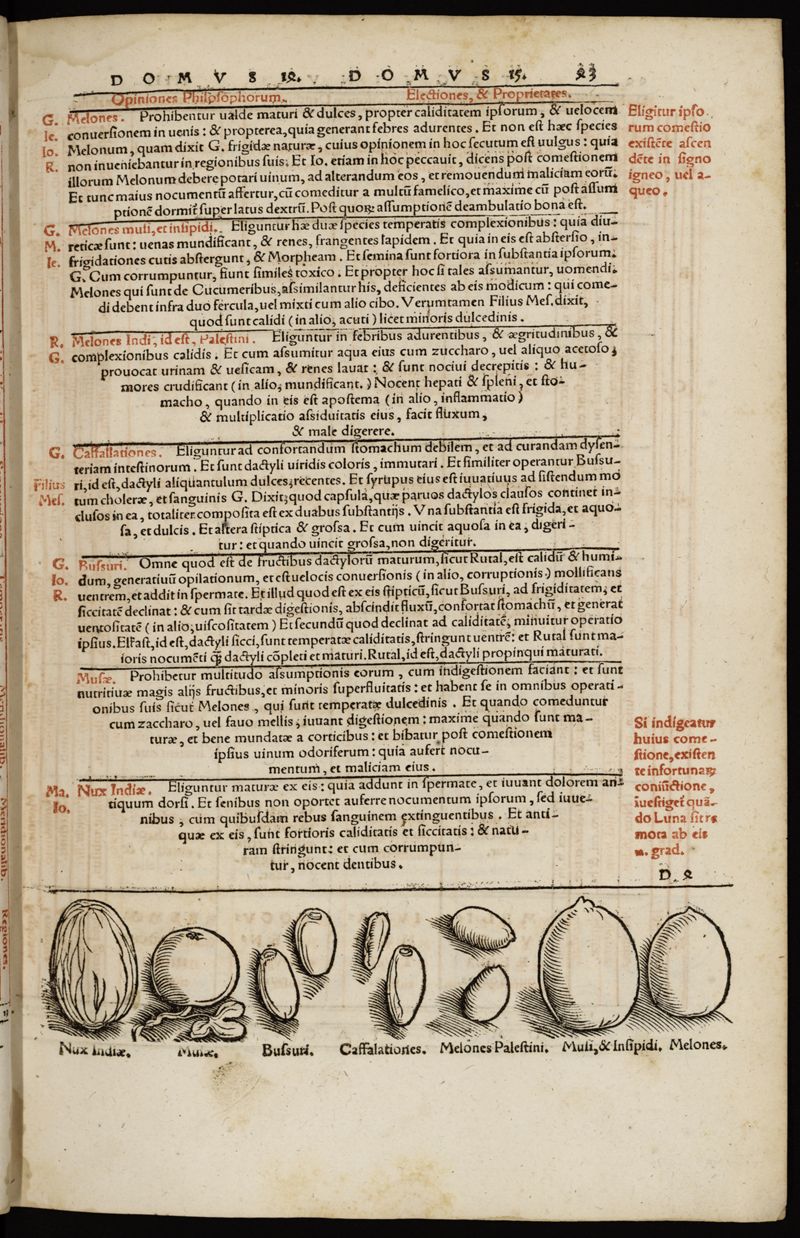 DOMVS 12. DOMVS 15. 23
Opiniones Philosophorum. Electiones, & Proprietates.
G. Melones. Prohibentur ualde maturi & dulces, propter caliditatem ipsorum, & uelocem
Ie. conuersionem in uenis: & propterea, quia generant febres adurentes. Et non est hæc species
Io. Melonum, quam dixit G. frigidæ naturæ, cuius opinionem in hoc secutum est uulgus: quia
R. non inueniebantur in regionibus suis; Et Io. etiam in hoc peccauit, dicens post comestionem
illorum Melonum debere potari uinum, ad alterandum eos, et remouendum maliciam eorū.
Et tunc maius nocumentū affertur, cū comeditur a multū famelico, et maxime cū post assum
ptionē dormit super latus dextrū. Post quorꝫ assumptionē deambulatio bona est.
Eligitur ipso
rum comestio
existēte ascen
dēte in signo
igneo, uel a-
queo.
G. Melones muli, et insipidi. Eliguntur hæ duæ species temperatis complexionibus: quia diu-
M. reticæ sunt: uenas mundificant, & renes, frangentes lapidem. Et quia in eis est abstersio, in-
Ie. frigidationes cutis abstergunt, & Morpheam. Et semina sunt fortiora in substantia ipsorum.
G. Cum corrumpuntur, fiunt similes toxico. Et propter hoc si tales assumantur, uomendi.
Melones qui sunt de Cucumeribus, assimilantur his, deficientes ab eis modicum: qui come-
di debent infra duo fercula, uel mixti cum alio cibo. Verumtamen Filius Mes. dixit,
quod sunt calidi (in alio, acuti) licet minoris dulcedinis.
R. Melones Indi, id est, Palestini. Eliguntur in febribus adurentibus, & ægritudinibus, &
G. complexionibus calidis. Et cum assumitur aqua eius cum zuccharo, uel aliquo acetoso,
prouocat urinam & uesicam, & renes lauat: & sunt nociui decrepitis: & hu-
mores crudificant (in alio, mundificant.) Nocent hepati & spleni, et sto-
macho, quando in eis est apostema (in alio, inflammatio)
& multiplicatio assiduitatis eius, facit fluxum,
& male digerere.
G. Cassallationes. Eliguntur ad confortandum stomachum debilem, et ad curandam dysen-
teriam intestinorum. Et sunt dactyli uiridis coloris, immutari. Et similiter operantur Busu-
Filius ri, id est, dactyli aliquantulum dulces, recentes. Et syrupus eius est iuuatiuus ad sistendum mo
Mes. tum choleræ, et sanguinis G. Dixit, quod capsula, quæ paruos dactylos clausos continet in-
clusos in ea, totaliter composita est ex duabus substantijs. Vna substantia est frigida, et aquo-
sa, et dulcis. Et altera stiptica & grossa. Et cum uincit aquosa in ea, digeri-
tur: et quando uincit grossa, non digeritur.
G. Bussuri. Omne quod est de fructibus dactylorū maturum, sicut Rutal, est calidū & humi-
Io. dum, generatiuū opilationum, et est uelocis conuersionis (in alio, corruptionis.) mollificans
R. uentrem, et addit in spermate. Et illud quod est ex eis stipticū, sicut Bussuri, ad frigiditatem, et
siccitatē declinat: & cum sit tardæ digestionis, abscindit fluxū, confortat stomachū, et generat
uentositatē (in alio, uiscositatem) Et secundū quod declinat ad caliditatē, minuitur operatio
ipsius. Elfast, id est, dactyli sicci, sunt temperatæ caliditatis, stringunt uentrē: et Rutal sunt ma-
ioris nocumēti ꝙ̄ dactyli cōpleti et maturi. Rutal, id est, dactyli propinqui maturati.
Musæ. Prohibetur multitudo assumptionis eorum, cum indigestionem faciant: et sunt
nutritiuæ magis alijs fructibus, et minoris superfluitatis: et habent se in omnibus operati-
onibus suis sicut Melones, qui sunt temperatæ dulcedinis. Et quando comeduntur
cum zaccharo, uel fauo mellis, iuuant digestionem: maxime quando sunt ma-
turæ, et bene mundatæ a corticibus: et bibatur post comestionem
ipsius uinum odoriferum: quia aufert nocu-
mentum, et maliciam eius.
Si indigeatur
huius come-
stione, existen
te infortunarꝫ
coniūctione,
iuestiget quā-
do Luna sit re
mota ab eis
12. grad.
Ma. Nux Indiæ. Eliguntur maturæ ex eis: quia addunt in spermate, et iuuant dolorem an-
Io. tiquum dorsi. Et senibus non oportet auferre nocumentum ipsorum, sed iuue-
nibus, cum quibusdam rebus sanguinem extinguentibus. Et anti-
quæ ex eis, sunt fortioris caliditatis et siccitatis: & natu-
ram stringunt: et cum corrumpun-
tur, nocent dentibus.
D 2
Nux Indiæ. Musæ. Bussuri. Cassalationes. Melones Palestini. Muli, & Insipidi. Melones.